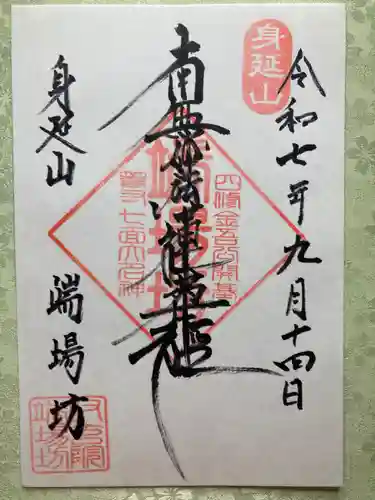 令和七年九月十四日
身延山
南無妙法蓮華経
端場坊
四條金吾公開基
七面大明神
身延山
端場坊
端場坊